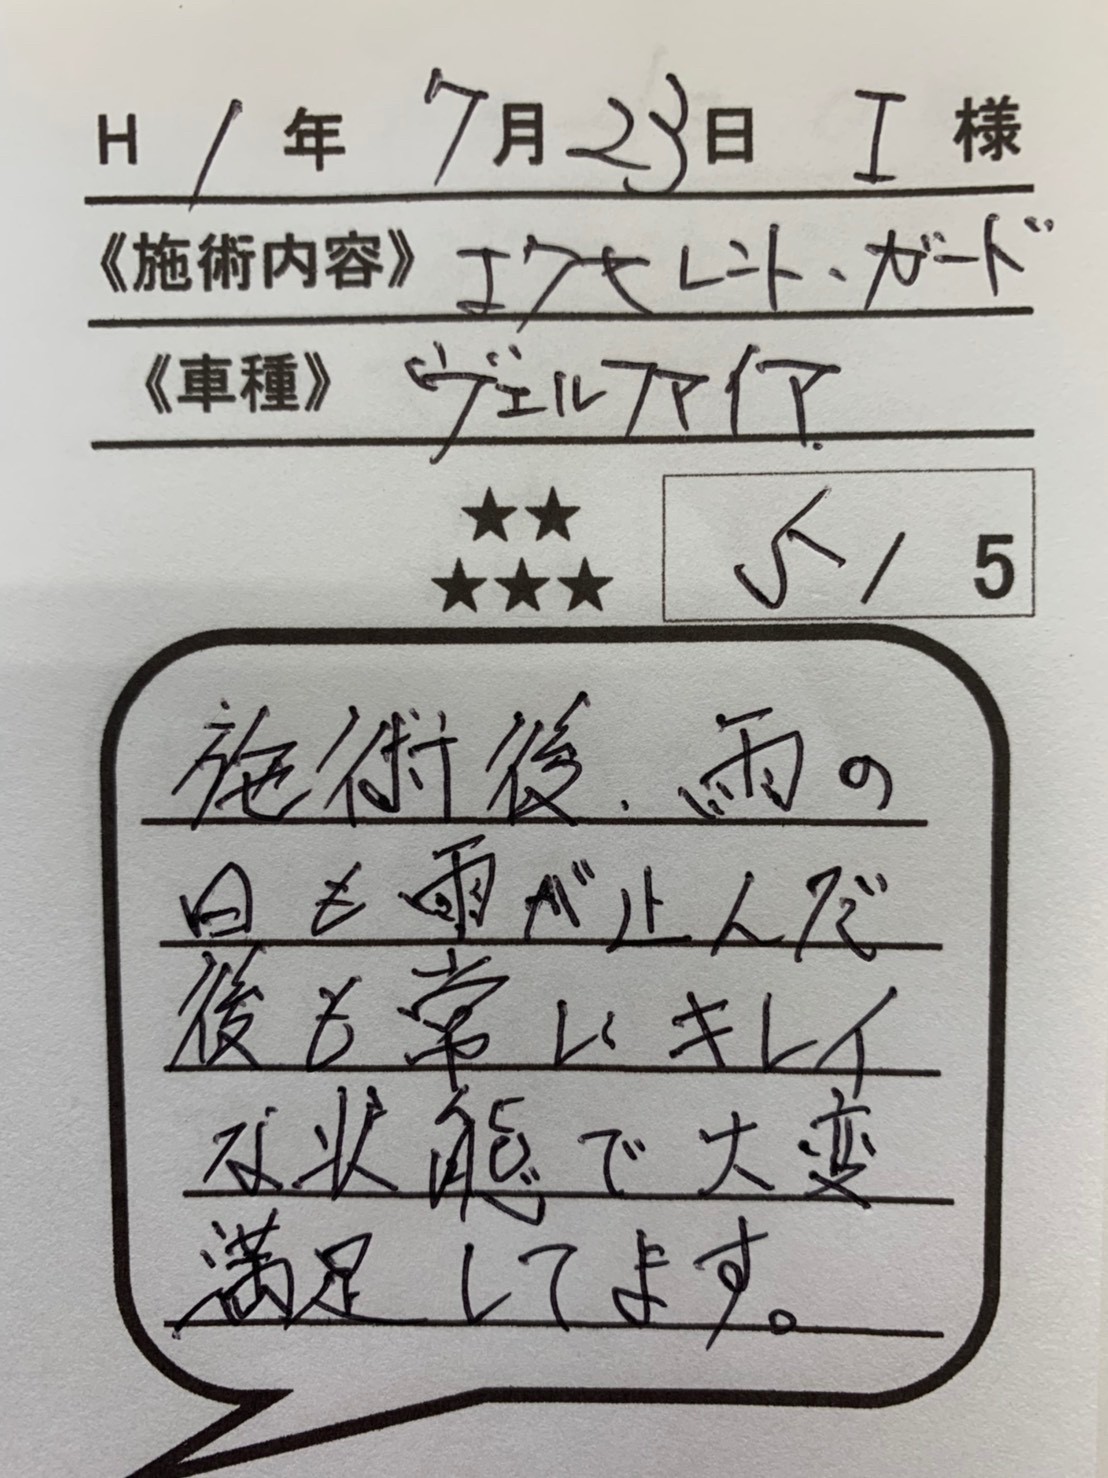 H 1 年 7月 23日 I 様
《施術内容》 エクセレント・ガード
《車種》 ヴェルファイア
★★
★★★ 5/5
施術後、雨の
日も雨が止んだ
後も常にキレイ
な状態で大変
満足してます。